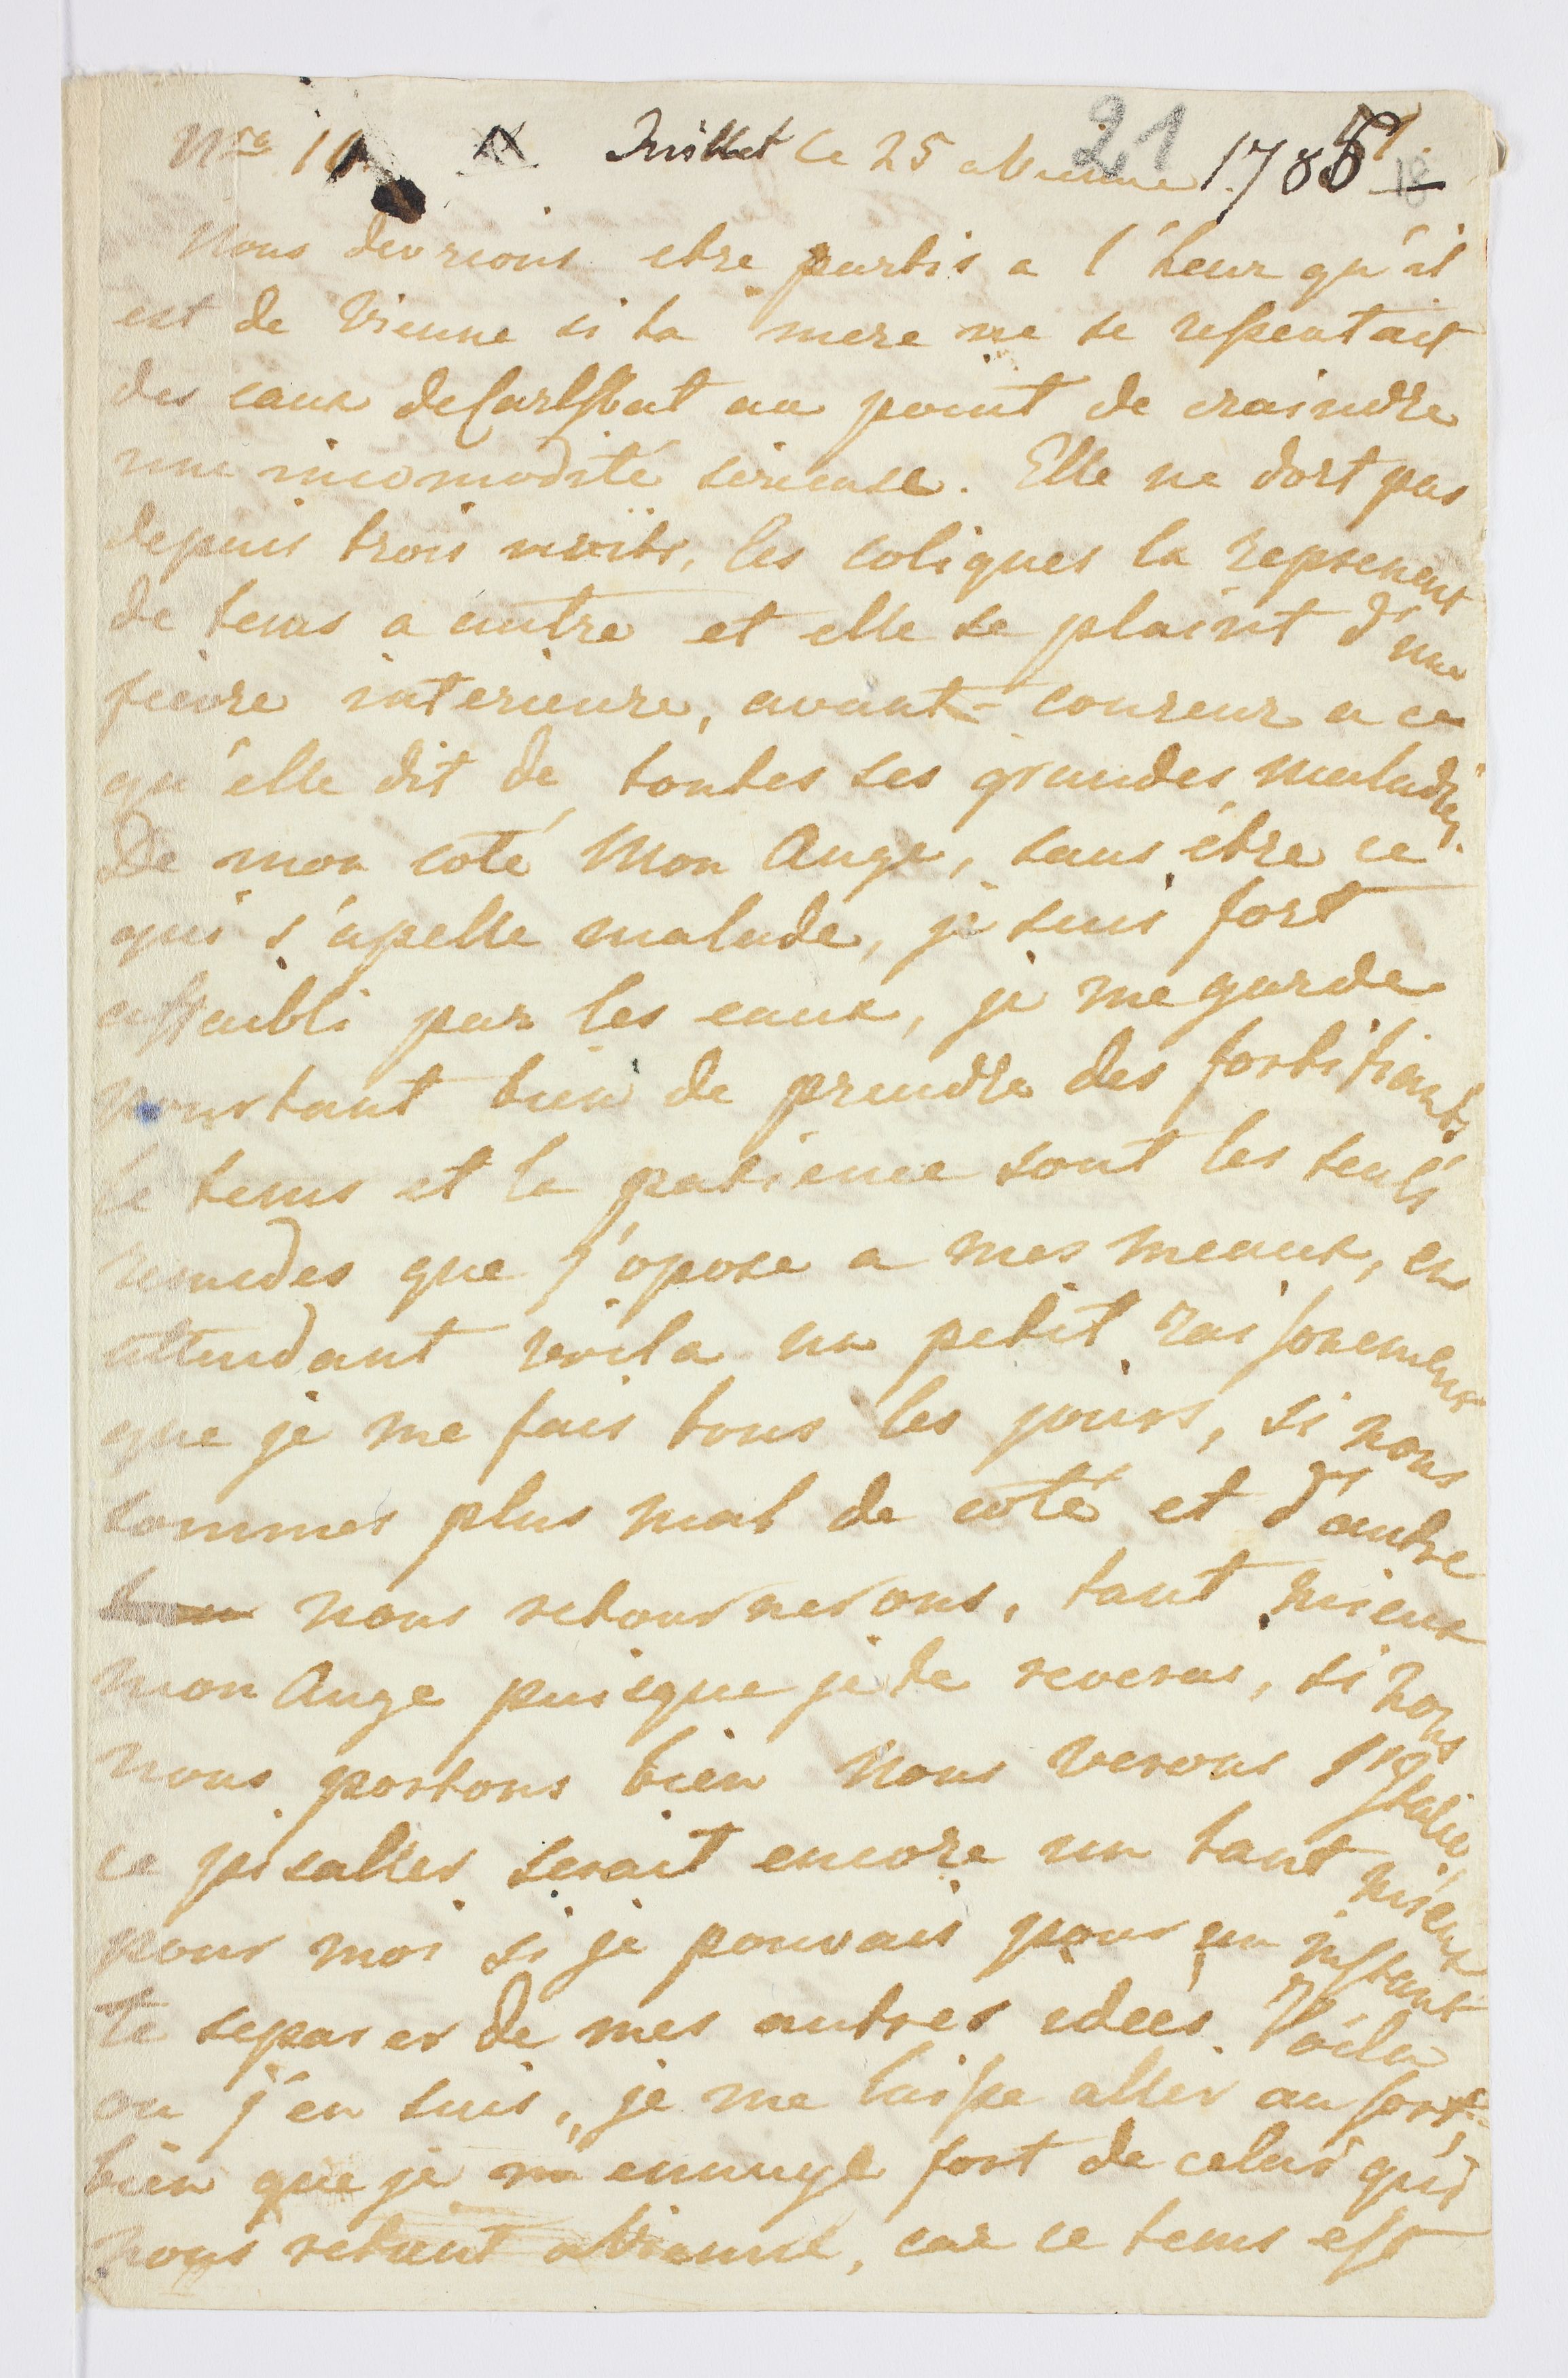 Nro 10 Juillet le 25 a Vienne 21 1785 18
Nous devrions etre partis a l'heur qu'il
est de Vienne si ta mere ne se ressentait
des eaux de Carlsbat au point de craindre
une incomodité serieuse. Elle ne dort pas
depuis trois nuits, les coliques la reprenent
de tems a autre et elle se plaint d'une
fievre interieure, avant-coureur a ce
qu'elle dit de toutes ses grandes maladies.
De mon coté Mon Ange, sans être ce
qui s'apelle malade, je suis fort
affaibli par les eaux, je me garde
pourtant bien de prendre des fortifiants
le tems et la patience sont les seuls
remedes que j'opose a mes meaux, en
attendant voila un petit raisonement
que je me fais tous les jours, si nous
sommes plus mal de coté et d'autre
nous retournerons, tant mieux
mon Ange puisque je te reveras, si nous
nous portons bien nous verons l'Italie,
ce pisaller serait encore un tant mieux
pour moi si je pouvais pour un instant
te separer de mes autres idees. Voila
ou j'en suis, je me laisse aller au sort,
bien que je m'ennuye fort de celui qui
nous retient a Vienne, car ce tems est